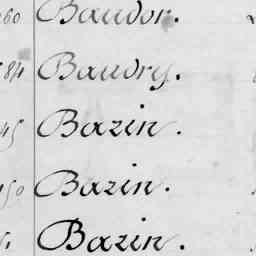 260 Baudor.
84 Baudry.
45 Bazin.
150 Bazin.
Bazin.